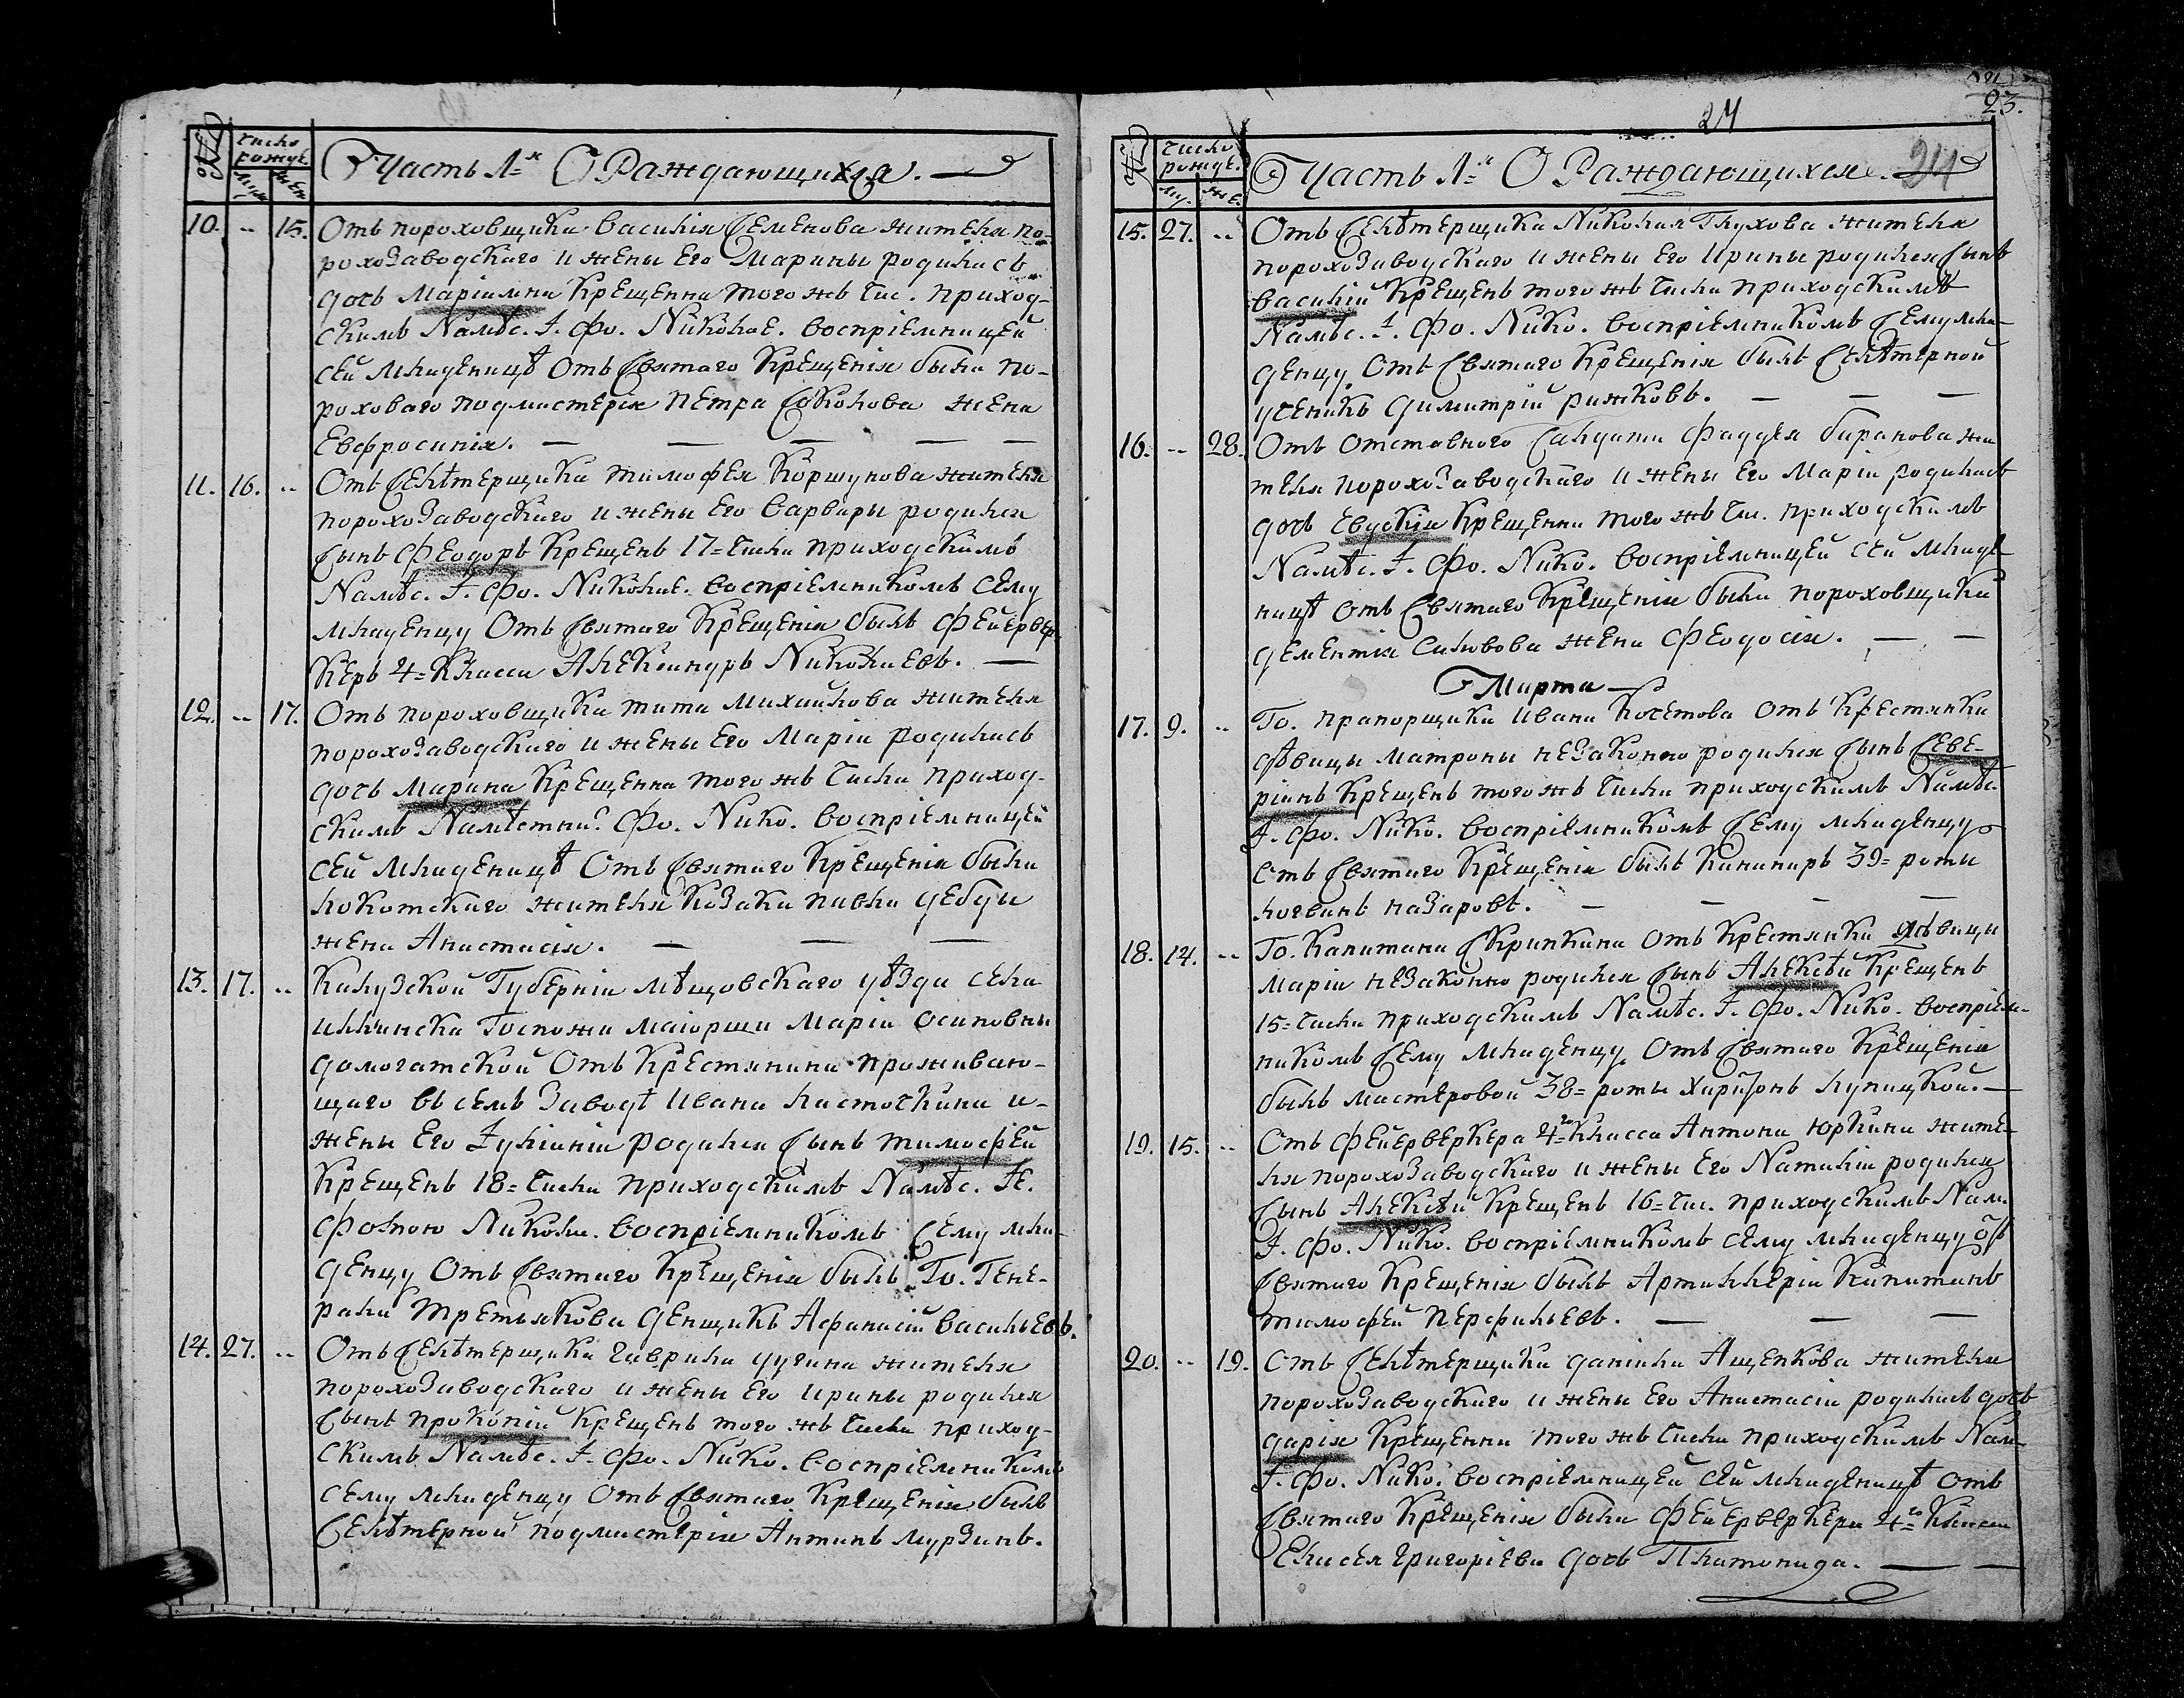 №
Число рожде.
муж. жен.
Часть 1я О Раждающихся.
10. -- 15. Отъ пороховщика василія Семенова жителя по-
рохозаводскаго и жены Его Марины родилась
дочь Маріамна Крещенна того жъ чис. приход-
скимъ Намѣс. І. Фо. Николае. воспріемницей
сей младеницѣ Отъ Святаго Крещенія была По-
роховаго подмастерія Петра Соколова жена
Евфросинія.
11. 16. -- Отъ Селѣтерщика тимофея Коршунова жителя
порохозаводскаго и жены Его варвары родился
Сынъ Феодоръ Крещенъ 17= числа приходскимъ
Намѣс. І. Фо. Николае. воспріемникомъ Сему
младенцу Отъ Святаго Крещенія былъ Фейервер-
керъ 4= Класса Александръ Николаевъ.
12. -- 17. Отъ пороховщика тита михайлова жителя
порохозаводскаго и жены Его Маріи родилась
дочь Марина Крещенна того жъ числа приход-
скимъ Намѣстни. Фо. Нико. воспріемницей
сей младеницѣ Отъ Святаго Крещенія была
локотскаго жителя козака павла дебды
жена Анастасія.
13. 17. -- Калузской Губерніи мѣщовскаго уѣзда села
илкинска Госпожи маіорши Маріи осиповны
домогатской Отъ Крестянина проживаю-
щаго въ семъ заводѣ Ивана ласточкина и
жены Его Іуліаніи родился Сынъ тимофей
Крещенъ 18= числа приходскимъ Намѣс. Іе.
Фотою Никола. воспріемникомъ Сему мла-
денцу Отъ Святаго Крещенія былъ Го. Гене-
рала третьякова денщикъ Афанасій васильевъ.
14. 27. -- Отъ Селѣтерщика гаврила чугина жителя
порохозаводскаго и жены Его ирины родился
Сынъ прокопій Крещенъ того жъ числа приход-
скимъ Намѣс. І. Фо. Нико. воспріемникомъ
сему младенцу Отъ Святаго Крещенія былъ
Селѣтерной подмастерія Антипъ мурзинъ.
24
23.
24
№
Число рожде.
му. же.
Часть 1я О Раждающихся.
15. 27. -- Отъ Селѣтерщика Николая Глухова жителя
порохозаводскаго и жены Его Ирины родился Сынъ
василій Крещенъ того жъ числа приходскимъ
Намѣс. І. Фо. Нико. воспріемникомъ Сему мла-
денцу Отъ Святаго Крещенія былъ Селѣтерной
ученикъ димитрій рижковъ.
16. -- 28. Отъ отставного Салдата Фаддея баранова жи
теля порохозаводскаго и жены Его Маріи родилась
дочь Евдокія Крещенна того жъ чис. приходскимъ
Намѣс. І. Фо. Нико. воспріемницей сей младе
ницѣ отъ Святаго Крещенія была пороховщика
дементія силовова жена Феодосія.
Марта
17. 9. -- Го. прапорщика Ивана кочетова отъ Крестянки
дѣвицы матроны незаконно родился Сынъ Севе-
ріянъ Крещенъ того жъ числа приходскимъ Намѣс.
І. Фо. Нико. воспріемникомъ Сему младенцу
отъ Святаго Крещенія былъ Кананиръ 39= роты
логвинъ назаровъ.
18. 14. -- Го. Капитана Скрипкина отъ Крестянки дѣвици
Маріи незаконно родился Сынъ Алексѣй Крещенъ
15= числа приходскимъ Намѣс. І. Фо. Нико. воспріем-
никомъ Сему младенцу Отъ Святаго Крещенія
былъ мастеровой 38= роты харитонъ лупицкой.
19. 15. -- Отъ Фейерверкера 4го= Класса Антона юркина жите-
ля порохозаводскаго и жены Его Наталіи родился
Сынъ Алексѣй Крещенъ 16= чис. приходскимъ Нам.
І. Фо. Нико. воспріемникомъ сему младенцу отъ
Святаго Крещенія былъ Артиллеріи Капитанъ
тимофей перфильевъ.
20. -- 19. Отъ Селѣтерщика даніила Ащепкова жителя
порохозаводскаго и жены Его Анастасіи родилась дочь
дарія Крещенна того жъ числа приходскимъ Нам
І. Фо. Нико. воспріемницей сей младеницѣ отъ
Святаго Крещенія была Фейерверкера 4го= Класса
Елисея григоріева дочь Платонида.